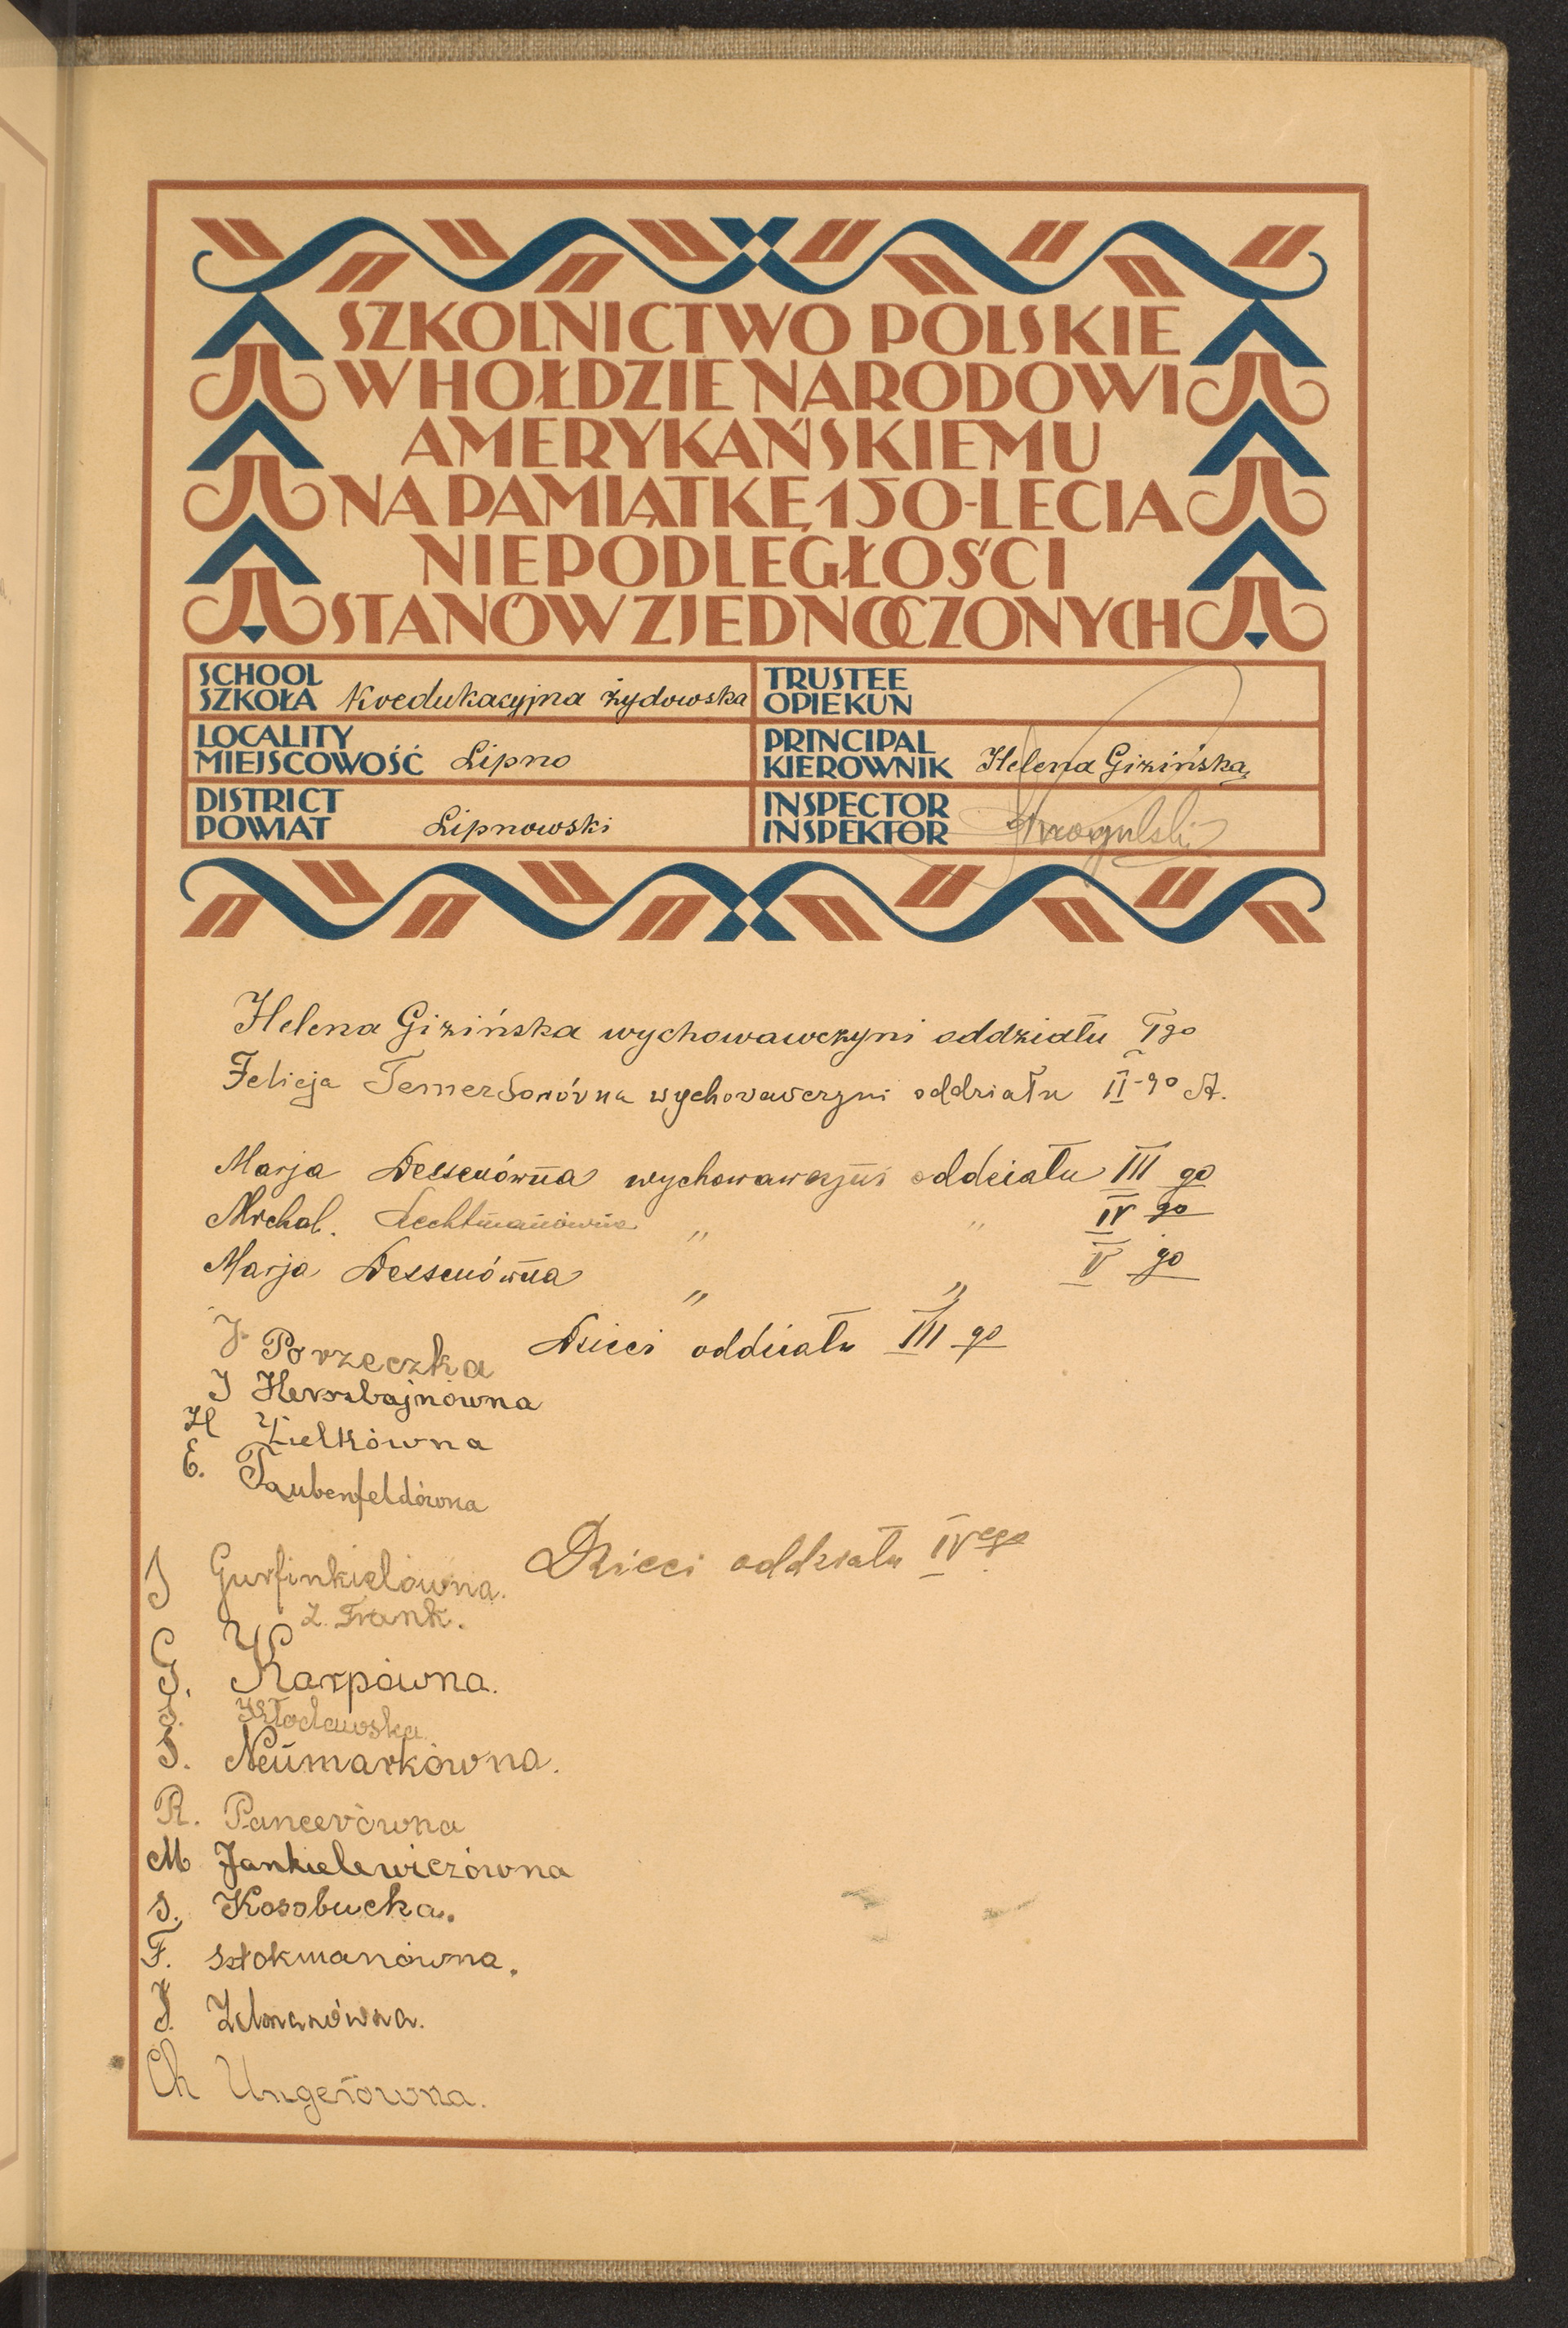 SZKOLNICTWO POLSKIE
W HOŁDZIE NARODOWI
AMERYKAŃSKIEMU
NA PAMIĄTKĘ 150-LECIA
NIEPODLEGŁOŚCI
STANÓW ZJEDNOCZONYCH
SCHOOL
SZKOŁA Koedukacyjna żydowska
TRUSTEE
OPIEKUN
LOCALITY
MIEJSCOWOŚĆ Lipno
PRINCIPAL
KIEROWNIK Helena Gizińska
DISTRICT
POWIAT Lipnowski
INSPECTOR
INSPEKTOR
Helena Gizińska wychowawczyni oddziału I go
Felicja Temersonówna wychowawczyni oddziału II-go A.
Marja Dessenówna wychowawczyni oddziału III go
Michal. Lechtmanówna " " IV go
Marja Dessenówna " " V go
J. Porzeczka Dzieci oddziału III go
J Herszbajnówna
H Zielkówna
E. Taubenfeldówna
J Gurfinkielówna. Dzieci oddziału IV ego
Z. Frank.
G. Karpówna.
S. Włocławska.
S. Neumarkówna.
R. Pancerówna
M Jankielewiczówna
S. Kosobucka.
F. Sztokmanówna.
J. Zelmanówna.
Ch Ungerówna.